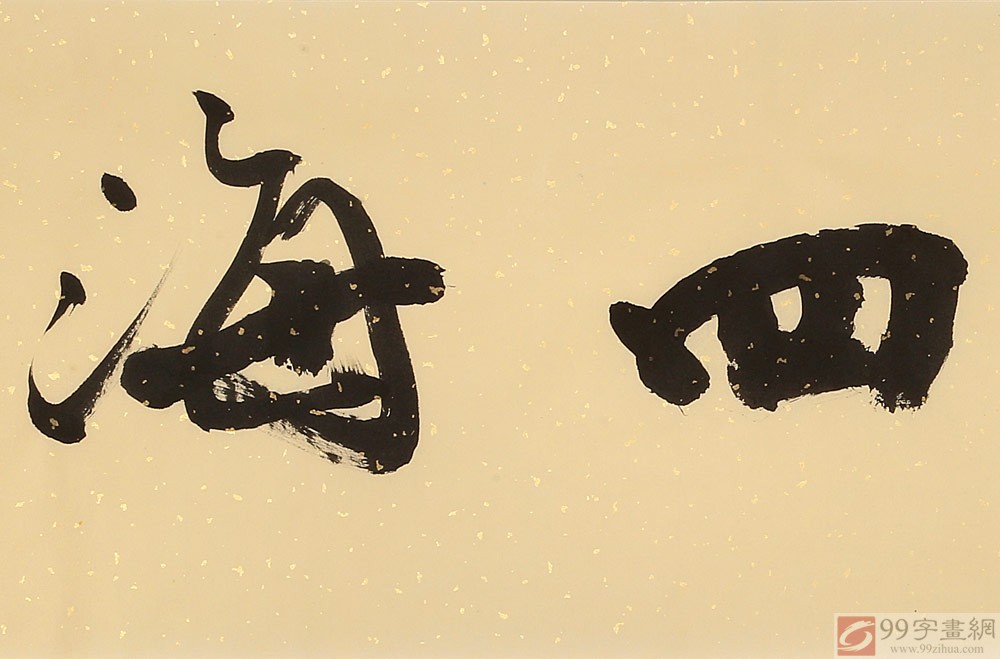 四海
99字畫網
www.99zihua.com